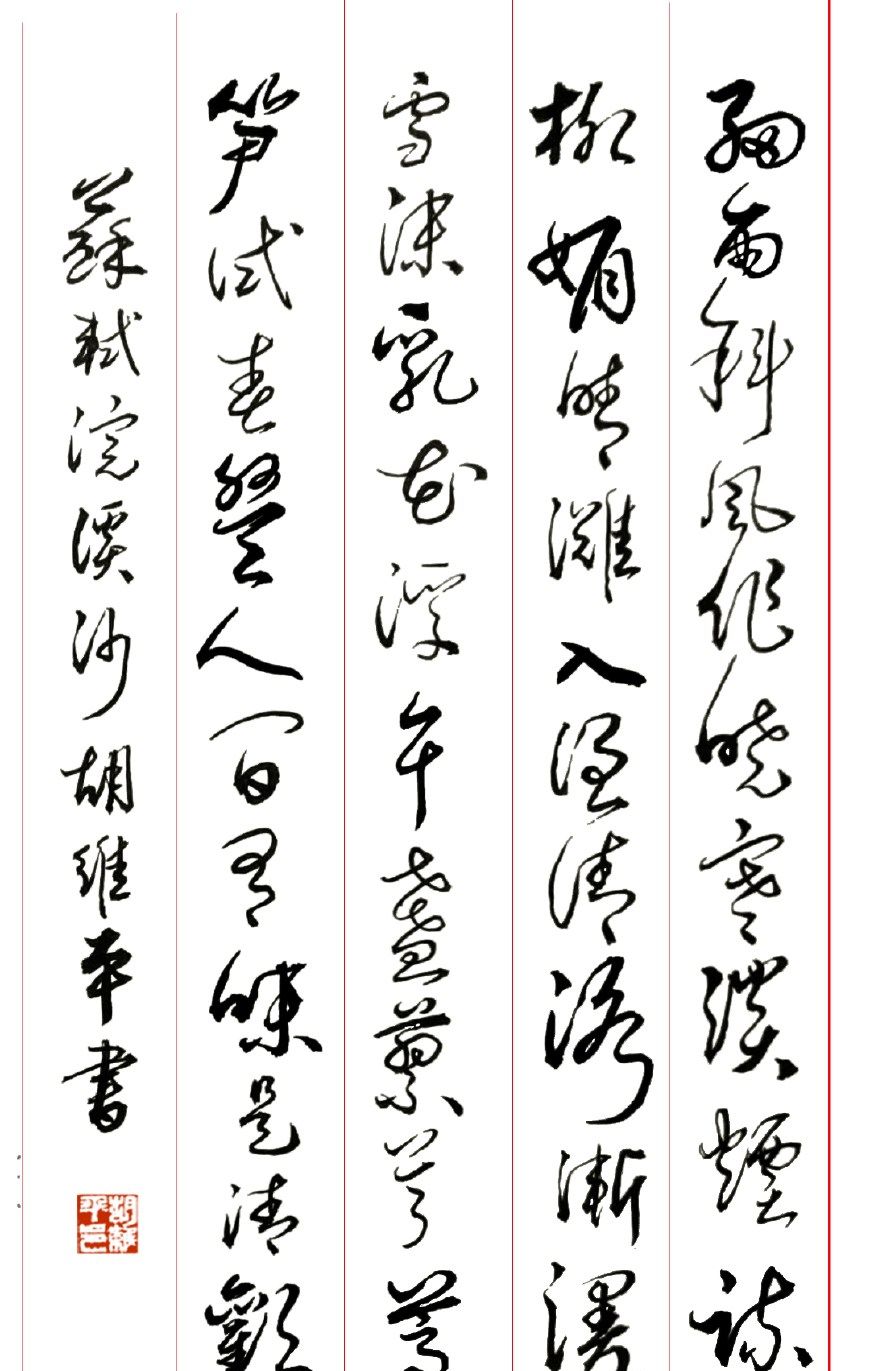 細雨斜風作曉寒淡煙疎
柳媚晴灘入淮清洛漸漫
雪沫乳花浮午盞蓼茸蒿
筍試春盤人間有味是清歡
蘇軾浣溪沙胡維平書
胡維平印